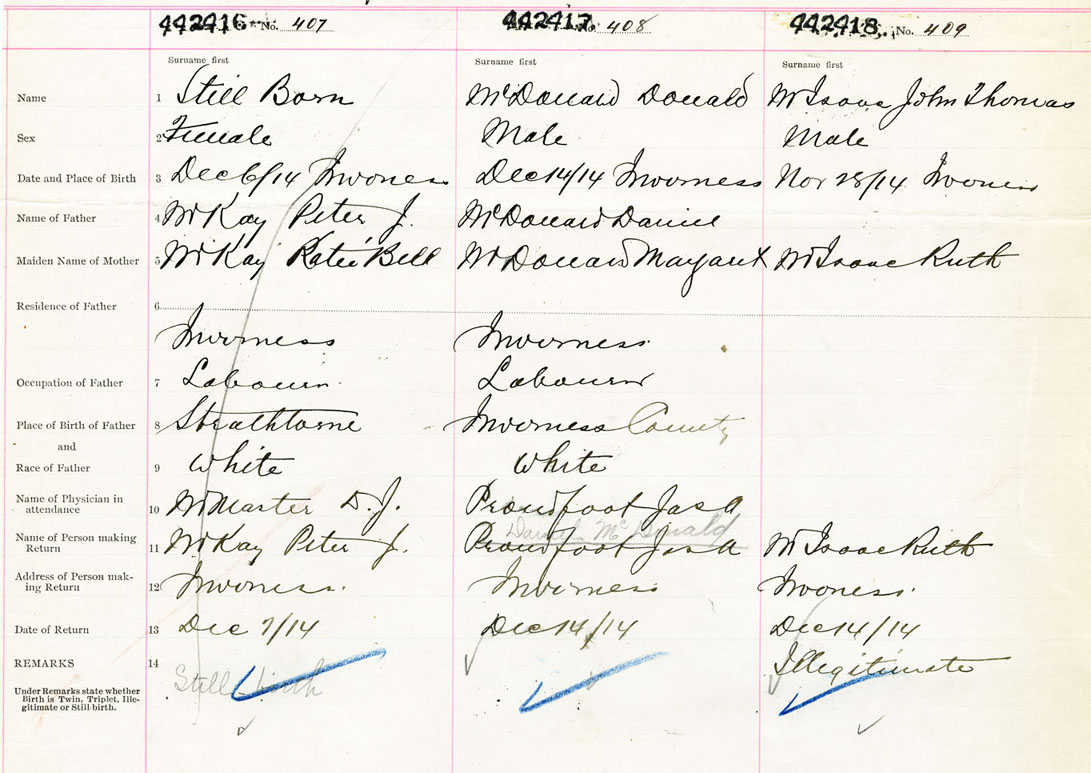 442416 No. 407 442417 No. 408 442418 No. 409
Surname first Surname first Surname first
Name 1 Still Born McDonald Donald McIsaac John Thomas
Sex 2 Female Male Male
Date and Place of Birth 3 Dec 6/14 Inverness Dec 14/14 Inverness Nov 28/14 Inverness
Name of Father 4 McKay Peter J. McDonald Daniel
Maiden Name of Mother 5 McKay Katie Bell McDonald Margaret McIsaac Ruth
Residence of Father 6
Inverness Inverness
Occupation of Father 7 Labourer Labourer
Place of Birth of Father 8 Strathlorne Inverness County
and
Race of Father 9 White White
Name of Physician in
attendance 10 McMaster D. J. Proudfoot Jas A
Daniel McDonald
Name of Person making
Return 11 McKay Peter J. Proudfoot Jas A McIsaac Ruth
Address of Person mak-
ing Return 12 Inverness. Inverness Inverness.
Date of Return 13 Dec 7/14 Dec 14/14 Dec 14/14
REMARKS 14 Still birth Illegitimate
Under Remarks state whether
Birth is Twin, Triplet, Ille-
gitimate or Still-birth.